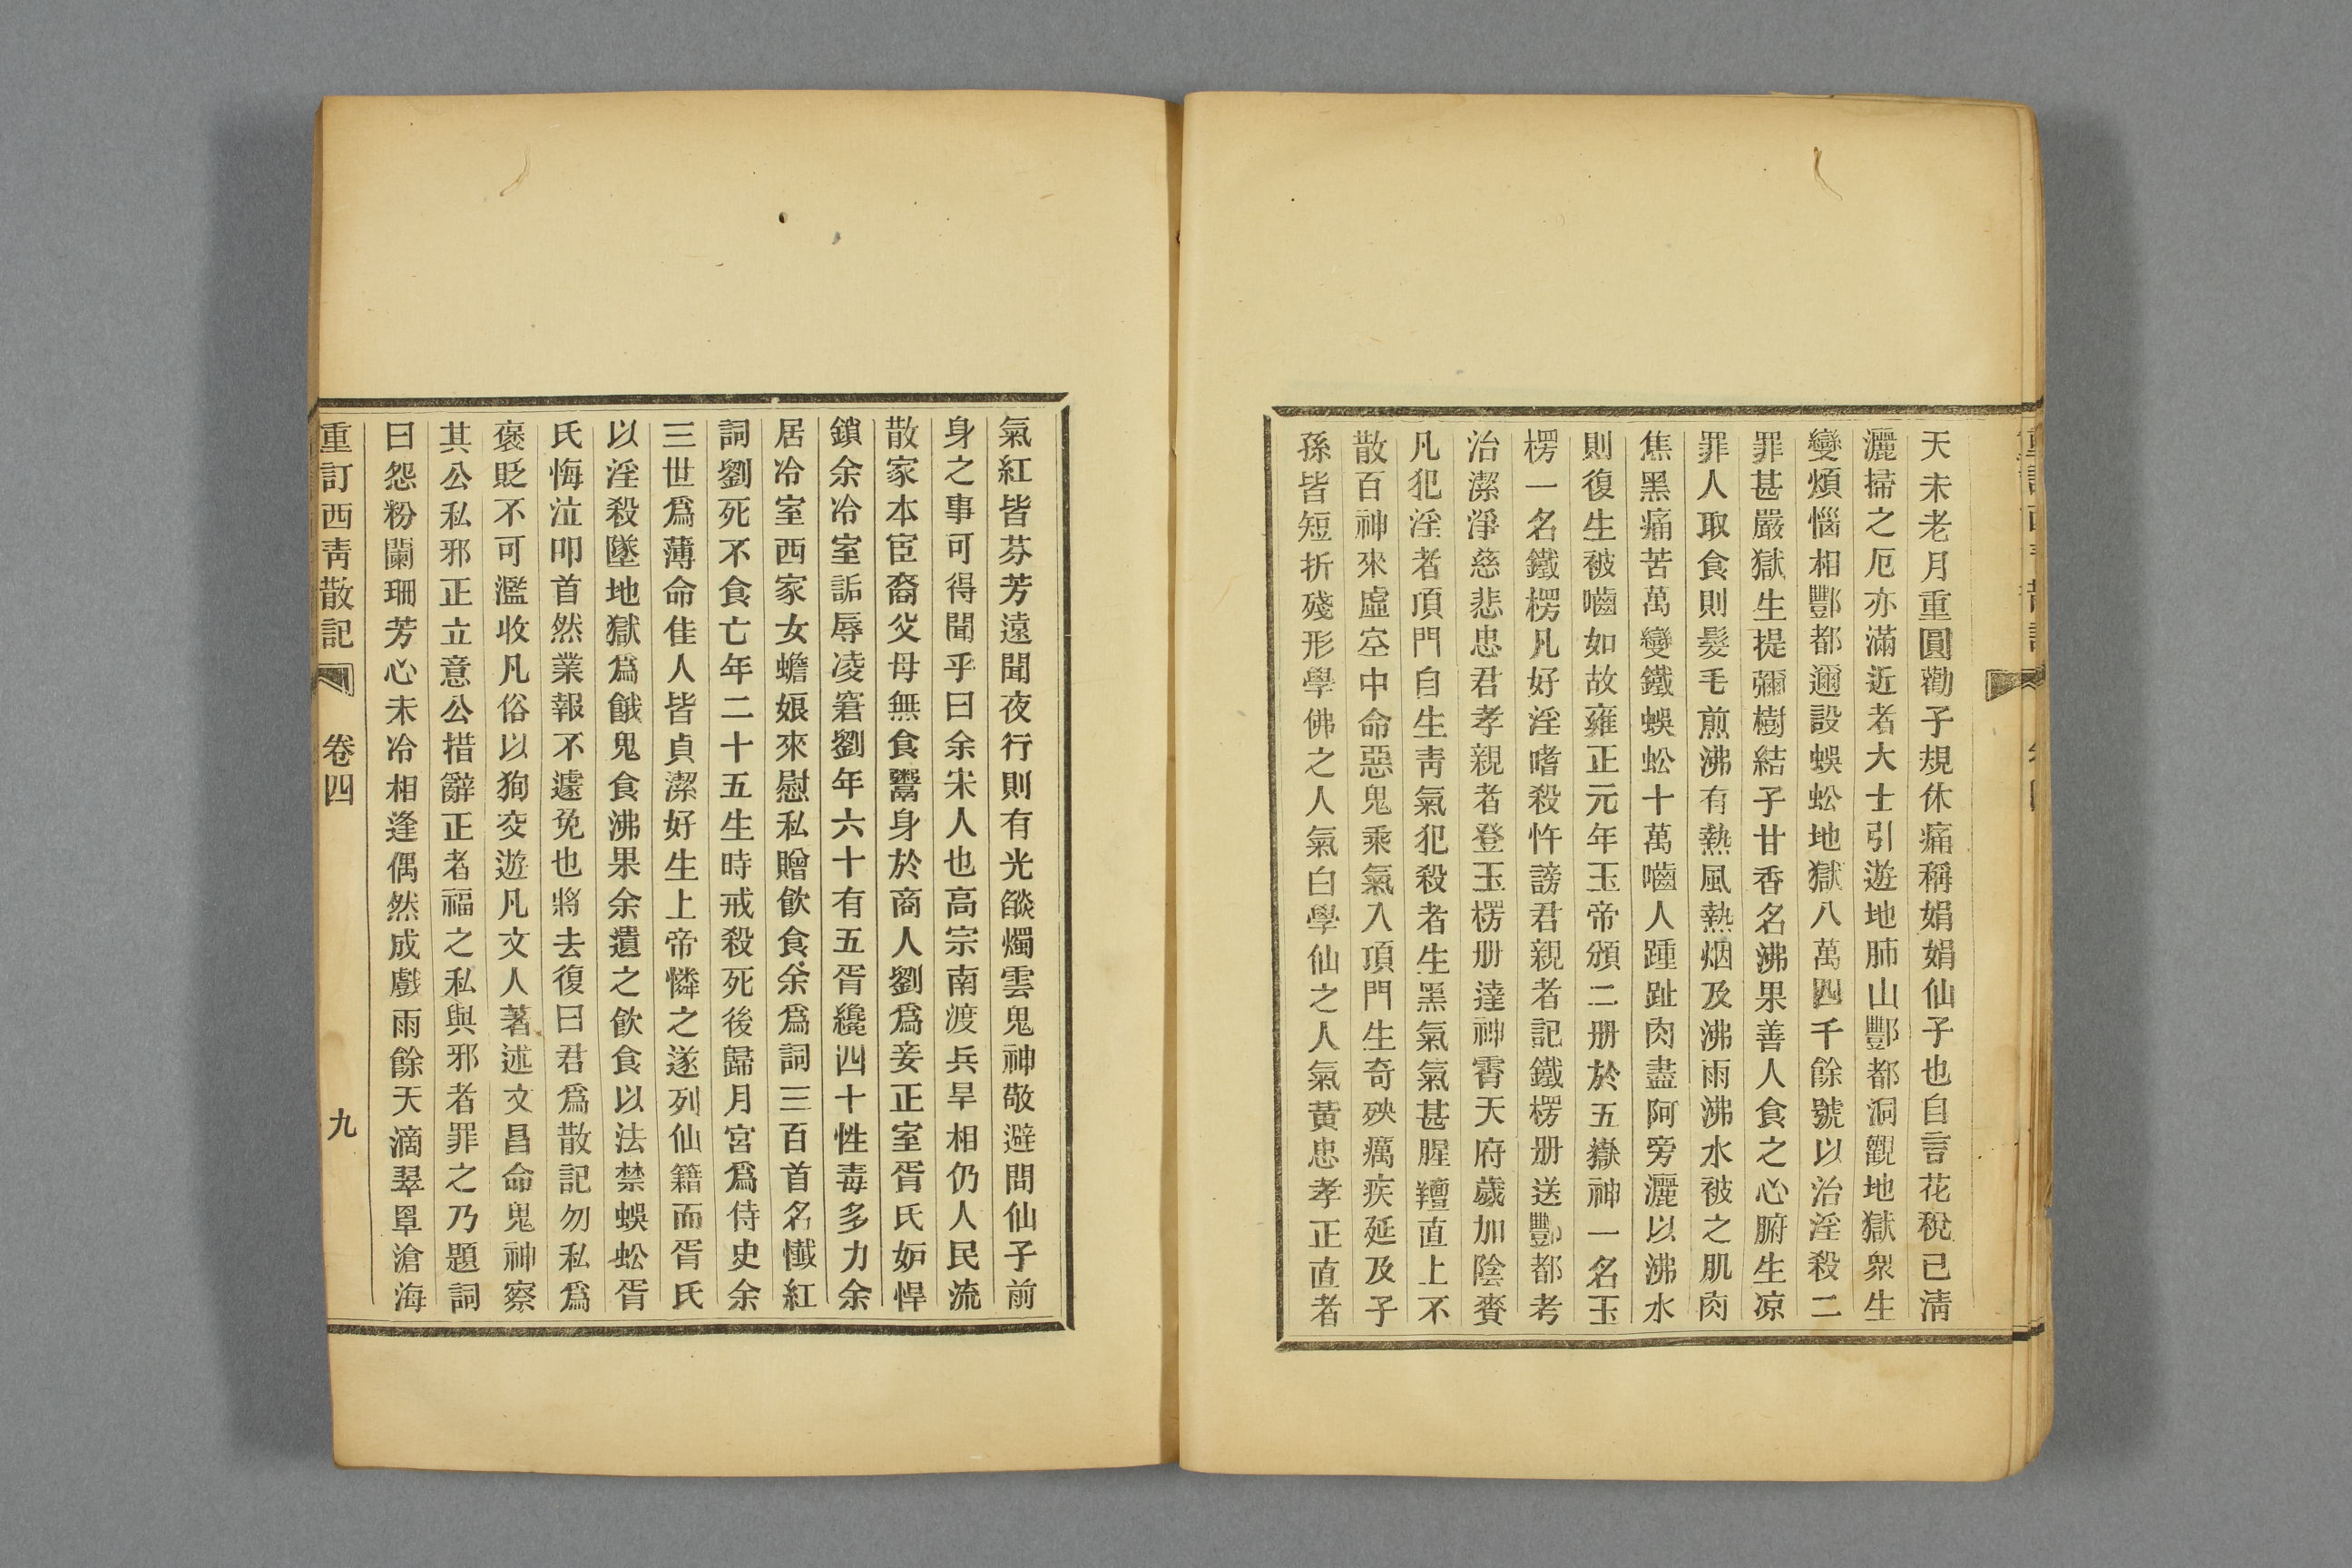 天未老月重圓勸子規休痛稱娟娟仙子也自言花稅已淸
灑掃之厄亦滿近者大士引遊地肺山酆都洞觀地獄衆生
變煩惱相酆都邇設蜈蚣地獄八萬四千餘號以治淫殺二
罪甚嚴獄生提彌樹結子甘香名沸果善人食之心腑生凉
罪人取食則髮毛煎沸有熱風熱烟及沸雨沸水被之肌肉
焦黑痛苦萬變鐵蜈蚣十萬嚙人踵趾肉盡阿旁灑以沸水
則復生被嚙如故雍正元年玉帝頒二册於五嶽神一名玉
楞一名鐵楞凡好淫嗜殺忤謗君親者記鐵楞册送酆都考
治潔淨慈悲忠君孝親者登玉楞册達神霄天府歲加陰賚
凡犯淫者頂門自生靑氣犯殺者生黑氣氣甚腥羶直上不
散百神來虛空中命惡鬼乘氣入頂門生奇殃癘疾延及子
孫皆短折殘形學佛之人氣白學仙之人氣黃忠孝正直者
氣紅皆芬芳遠聞夜行則有光燄燭雲鬼神敬避問仙子前
身之事可得聞乎曰余宋人也高宗南渡兵旱相仍人民流
散家本宦裔父母無食鬻身於商人劉爲妾正室胥氏妒悍
鎖余冷室詬辱凌窘劉年六十有五胥纔四十性毒多力余
居冷室西家女蟾娘來慰私贈飮食余爲詞三百首名懺紅
詞劉死不食亡年二十五生時戒殺死後歸月宮爲侍史余
三世爲薄命佳人皆貞潔好生上帝憐之遂列仙籍而胥氏
以淫殺墜地獄爲餓鬼食沸果余遺之飮食以法禁蜈蚣胥
氏悔泣叩首然業報不遽免也將去復曰君爲散記勿私爲
褒貶不可濫收凡俗以狥交遊凡文人著述文昌命鬼神察
其公私邪正立意公措辭正者福之私與邪者罪之乃題詞
曰怨粉闌珊芳心未冷相逢偶然成戲雨餘天滴翠罩滄海
重訂西靑散記 卷四 九